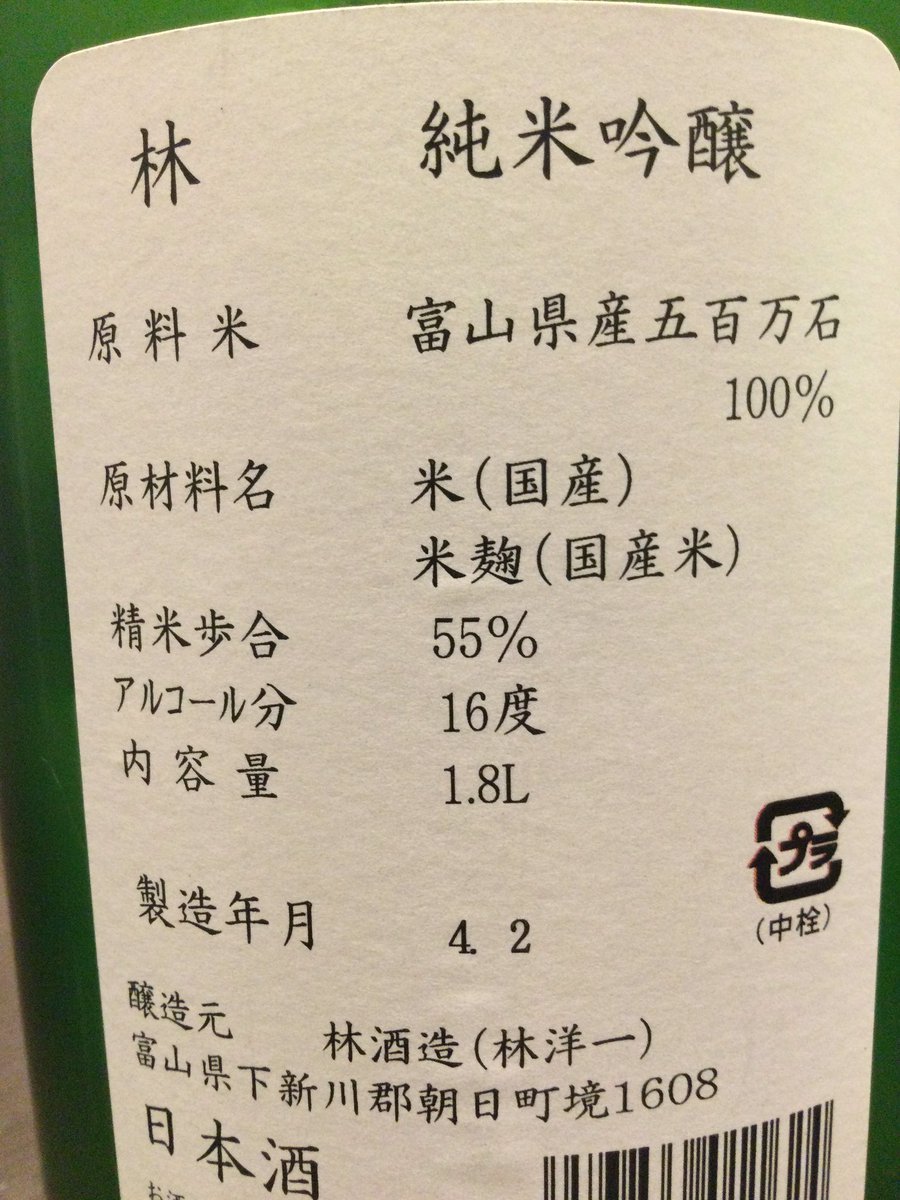 林 純米吟醸
原料米 富山県産五百万石
100%
原材料名 米(国産)
米麹(国産米)
精米歩合 55%
アルコール分 16度
内容量 1.8L
プラ
(中栓)
製造年月 4. 2
醸造元 林酒造(林洋一)
富山県下新川郡朝日町境1608
日本酒
お酒